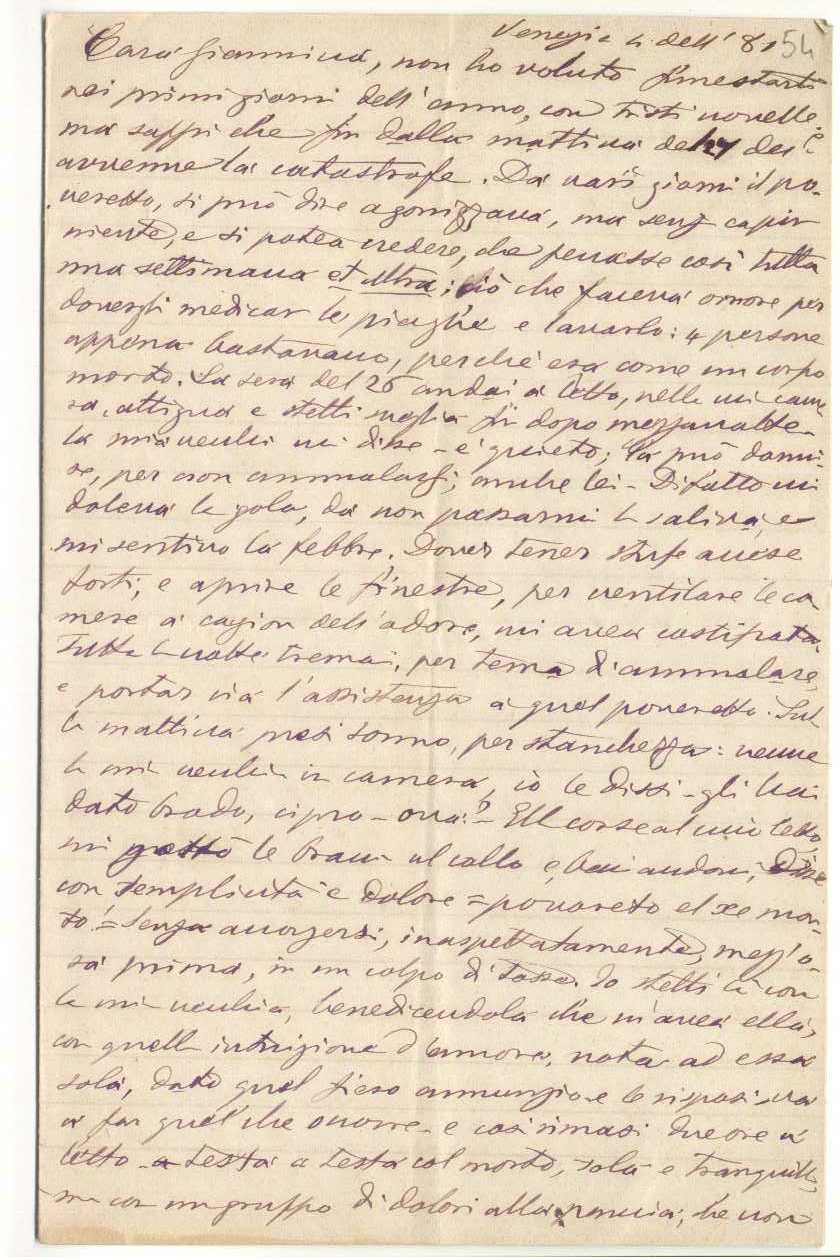 Venezia 4 dell' 81 54
Cara Giannina, non ho voluto funestarti
nei primi giorni dell'anno, con tristi novelle,
ma sappi che fin dalla mattina del 27 dec
avvenne la catastrofe. Da varii giorni il po-
veretto, si può dire agonizzava, ma senza capir
niente, e si potea credere, che penasse così tutta
una settimana et ultra; ciò che faceva orrore per
dovergli medicar le piaghe e lavarlo: 4 persone
appena bastavano, perchè era come un corpo
morto. La sera del 26 andai a letto, nella mi came
ra, attigua e stetti sveglia fin dopo mezzanotte -
la mia vecchia mi disse - è quieto; la può dormi-
re, per non ammalarsi, anche lei - Difatto mi
doleva la gola, da non passarmi la saliva, e
mi sentivo la febbre. Dover tener stufe accese
forti, e aprire le finestre, per ventilare le ca
mere a cagion dell'odore, mi avea costipata.
Tutta la notte tremai, per tema di ammalare,
e portar via l'assistenza a quel poveretto. Sul
la mattina presi sonno, per stanchezza: venne
la mi vecchia in camera, io le dissi - gli hai
dato brodo, cipro - ova? - Ella corse al mio letto,
mi gettò le braccia al collo e, disse
con semplicità e dolore = povareto el xe mor-
to! = Senza accorgersi, inaspettatamente, mezz'o-
ra prima, in un colpo di tosse. Io stetti là con
la mia vecchia, benedicendola che m'avea ella,
con quella intuizione d'amore, nota ad essa
sola, dato quel fiero annunzio e le risposi va
a far quel che occorre - e così rimasi due ore a
letto - a testa a testa col morto, sola e tranquilla,
ma con un gruppo di dolori alla pancia, che non